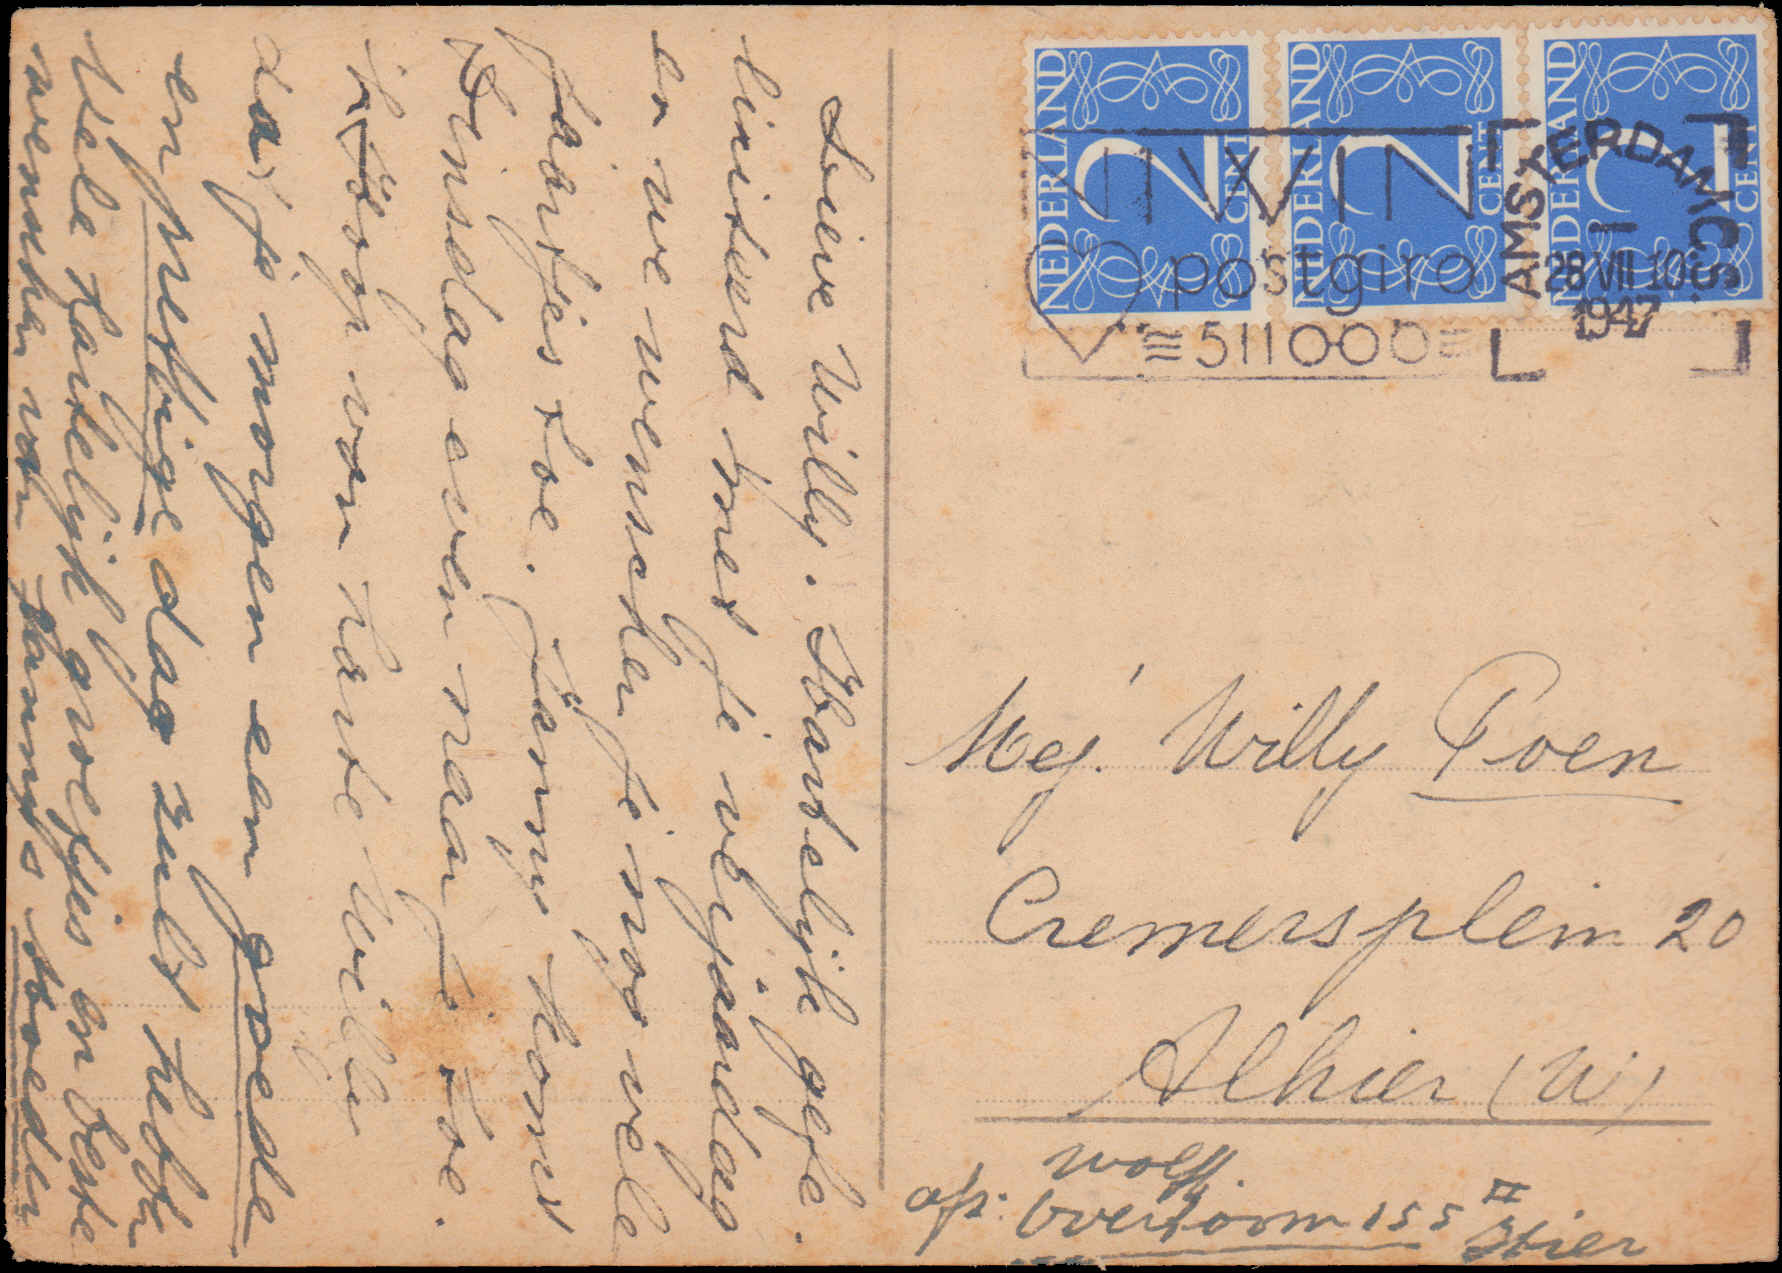 Lieve Willy. Hartelijk gefe-
liciteerd met je verjaardag
en we wenschen je nog vele
jaartjes toe. Jammer komt
Dinsdag even naar je toe.
Ik hoop van harte Willy
dat je morgen een goede
en prettige dag zult hebben
Vele hartelijk groetjes en beste
wenschen van
NEDERLAND 2 CENT
NEDERLAND 2 CENT
NEDERLAND 2 CENT
NIWIN
postgiro
511000
AMSTERDAM C.S.
28 VII 10
1947
Mej. Willy Poen
Cremersplein 20
Alhier (W)
afz: Wolff.
Overtoom 155 II
Hier